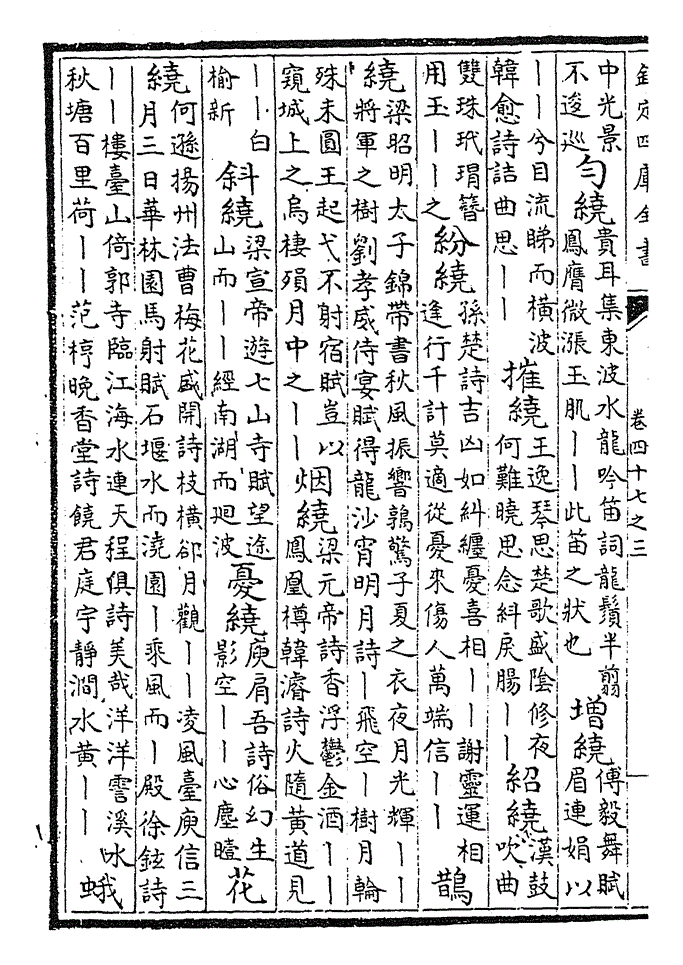 欽定四庫全書 卷四十七之三
中光景
不逡巡
勻繞
貴耳集東坡水龍吟笛詞龍鬚半翦
鳳膺微漲玉肌——此笛之狀也
增繞
傅毅舞賦
眉連娟以
——兮目流睇而橫波
韓愈詩詰曲思——
摧繞
王逸琴思楚歌盛陰修夜
何難曉思念糾戾腸——
紹繞
漢鼓
吹曲
雙珠玳瑁簪
用玉——之
紛繞
孫楚詩吉凶如糾纏憂喜相——謝靈運相
逢行千計莫適從憂來傷人萬端信——
鵲
繞
梁昭明太子錦帶書秋風振響鶉驚子夏之衣夜月光輝——
將軍之樹劉孝威侍宴賦得龍沙宵明月詩—飛空—樹月輪
殊未圓王起弋不射宿賦豈以
窺城上之烏棲殞月中之——
烟繞
梁元帝詩香浮鬱金酒——
鳳凰樽韓濬詩火隨黄道見
——白
榆新
斜繞
梁宣帝遊七山寺賦望途
山而——經南湖而廻波
憂繞
庾肩吾詩俗幻生
影空——心塵曀
花
繞
何遜揚州法曹梅花盛開詩枝橫郤月觀——凌風臺庾信三
月三日華林園馬射賦石堰水而澆園—乘風而—殿徐鉉詩
——樓臺山倚郭寺臨江海水連天程俱詩美哉洋洋霅溪水
秋塘百里荷——范梈晚香堂詩饒君庭宇靜澗水黄——
蛾